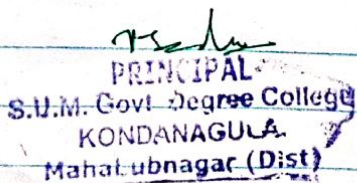 PRINCIPAL
S.U.M. Govt Degree College
KONDANAGULA
MahaLubnagar (Dist)